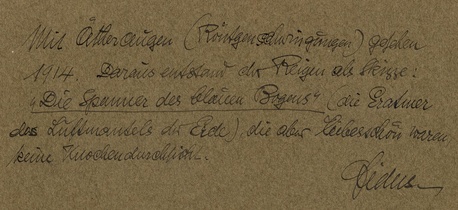 Mit Ätheraugen (Röntgenschwingungen) gesehen
1914. Daraus entstand der Reigen als Skizze:
„Die Spanner des blauen Bogens" (die Eratmer
des Luftmantels der Erde) die aber leiberschön waren,
keine Knochendurchsicht.
Fidus